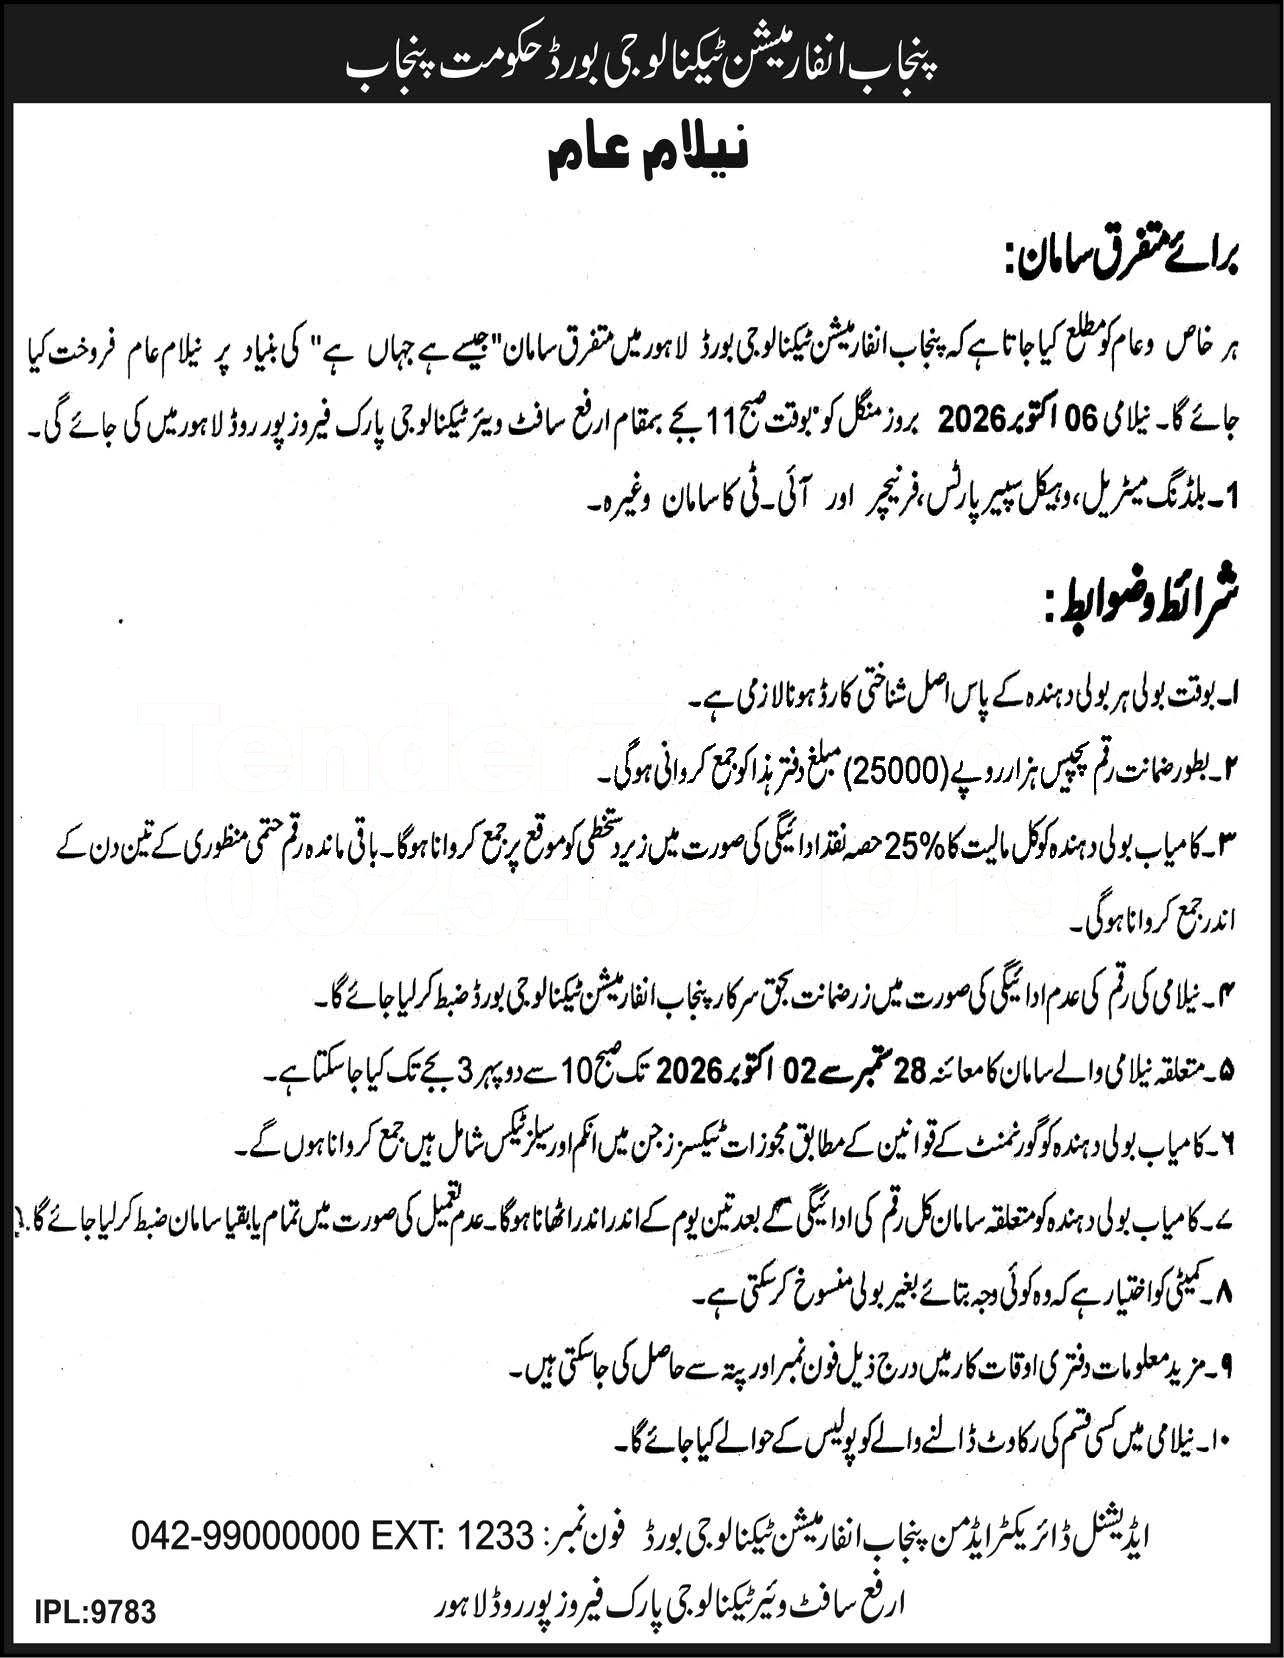 پنجاب انفارمیشن ٹیکنالوجی بورڈ حکومت پنجاب
نیلام عام
برائے متفرق سامان:
ہر خاص و عام کو مطلع کیا جاتا ہے کہ پنجاب انفارمیشن ٹیکنالوجی بورڈ لاہور میں متفرق سامان "جیسے ہے جہاں ہے" کی بنیاد پر نیلام عام فروخت کیا
جائے گا۔ نیلامی 06 اکتوبر 2026 بروز منگل کو بوقت صبح 11 بجے بمقام ارفع سافٹ ویئر ٹیکنالوجی پارک فیروز پور روڈ لاہور میں کی جائے گی۔
1۔ بلڈنگ میٹریل، وہیکل سپیر پارٹس، فرنیچر اور آئی۔ٹی کا سامان وغیرہ۔
شرائط و ضوابط:
۱۔ بوقت بولی ہر بولی دہندہ کے پاس اصل شناختی کارڈ ہونا لازمی ہے۔
۲۔ بطور ضمانت رقم پچیس ہزار روپے (25000) مبلغ دفتر ہذا کو جمع کروانی ہوگی۔
۳۔ کامیاب بولی دہندہ کو کل مالیت کا 25% حصہ نقد ادائیگی کی صورت میں زیر دستخطی کو موقع پر جمع کروانا ہوگا۔ باقی ماندہ رقم حتمی منظوری کے تین دن کے
اندر جمع کروانا ہوگی۔
۴۔ نیلامی کی رقم کی عدم ادائیگی کی صورت میں زر ضمانت بحق سرکار پنجاب انفارمیشن ٹیکنالوجی بورڈ ضبط کر لیا جائے گا۔
۵۔ متعلقہ نیلامی والے سامان کا معائنہ 28 ستمبر سے 02 اکتوبر 2026 تک صبح 10 سے دوپہر 3 بجے تک کیا جا سکتا ہے۔
۶۔ کامیاب بولی دہندہ کو گورنمنٹ کے قوانین کے مطابق مجوزات ٹیکسز جن میں انکم اور سیلز ٹیکس شامل ہیں جمع کروانا ہوں گے۔
۷۔ کامیاب بولی دہندہ کو متعلقہ سامان کل رقم کی ادائیگی کے بعد تین یوم کے اندر اندر اٹھانا ہوگا۔ عدم تعمیل کی صورت میں تمام یا بقیا سامان ضبط کر لیا جائے گا۔
۸۔ کمیٹی کو اختیار ہے کہ وہ کوئی وجہ بتائے بغیر بولی منسوخ کر سکتی ہے۔
۹۔ مزید معلومات دفتری اوقات کار میں درج ذیل فون نمبر اور پتہ سے حاصل کی جا سکتی ہیں۔
۱۰۔ نیلامی میں کسی قسم کی رکاوٹ ڈالنے والے کو پولیس کے حوالے کیا جائے گا۔
ایڈیشنل ڈائریکٹر ایڈمن پنجاب انفارمیشن ٹیکنالوجی بورڈ فون نمبر: 042-99000000 EXT: 1233
ارفع سافٹ ویئر ٹیکنالوجی پارک فیروز پور روڈ لاہور
IPL:9783